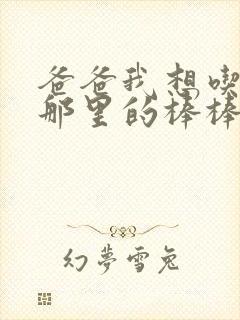 爸爸我想喫
那里的棒棒
幻夢雪兔